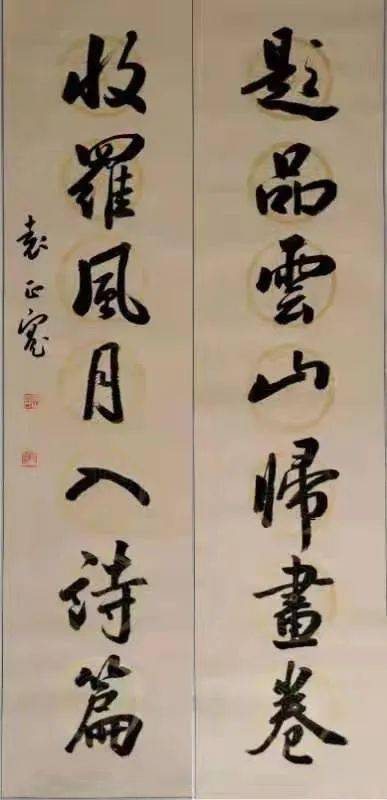 題品雲山歸畫卷
收羅風月入詩篇
袁正寬